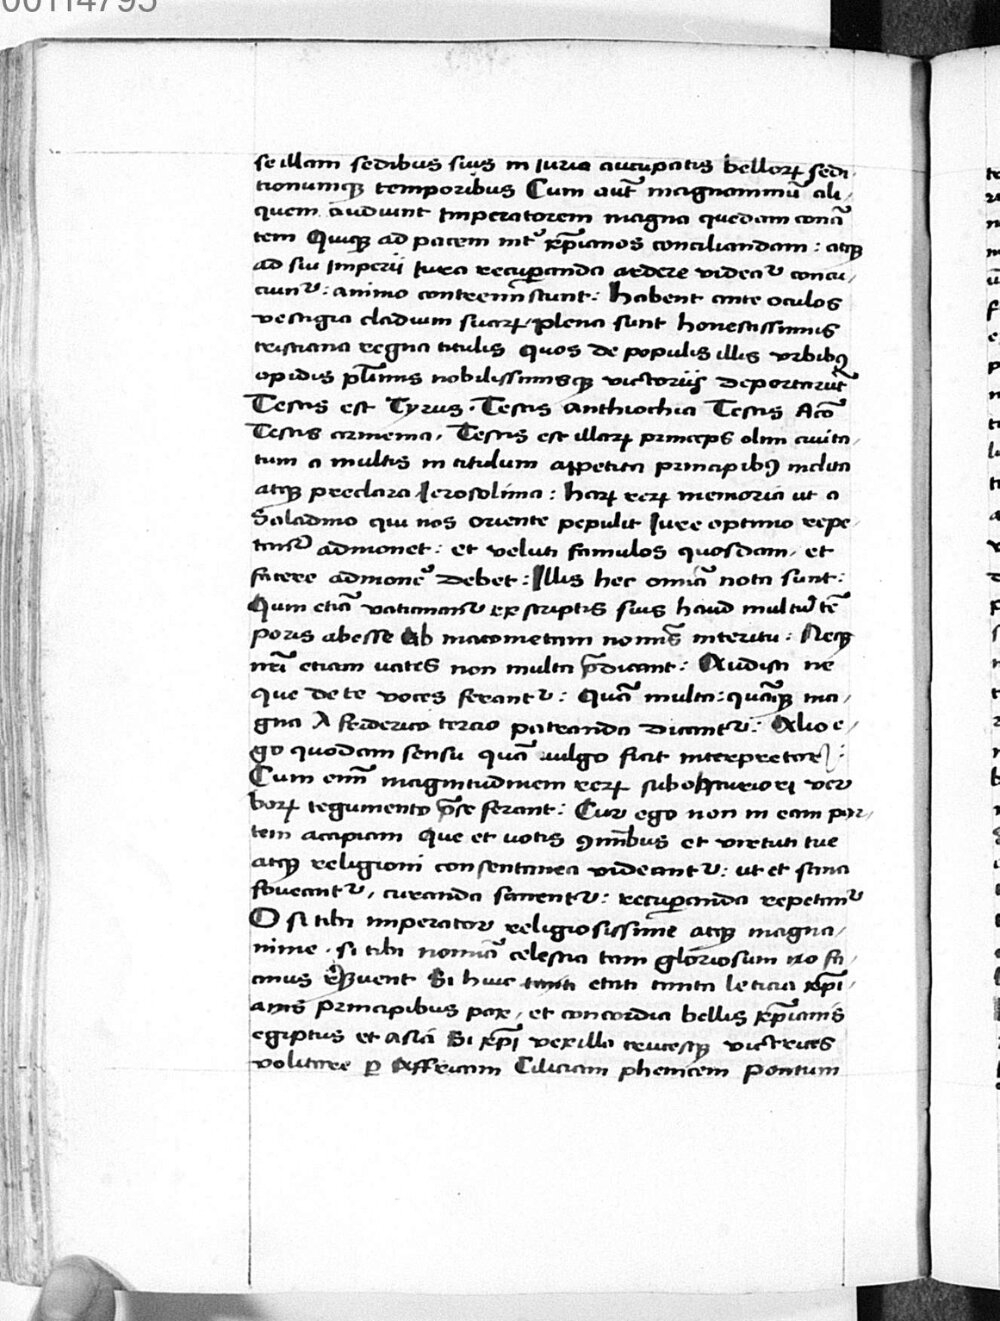 00114795
se illam sedibus suis in Iuria aucupatis belloꝝ sedi
tionumqꝫ temporibus Cum aut̄ magnanimū ali
quem audiunt Imperatorem magna quedam conā
tem Quiqꝫ ad pacem int̄ xp̄ianos conciliandam : atqꝫ
ad sui Imperii Iura recuꝑanda ardere videat᷑ concu
ciunt᷑ : animo contremīscunt : habent ante oculos
vestigia cladium suaꝝ plena sunt honestissimis
cristiana regna titulis quos de populis illis vrbibꝰ
opidis pl̄imis nobilissimisqꝫ victoriis deportarūt
Testis est Tyrus . Testis anthiochia Testis Acō
Testis armenia . Testis est illaꝝ princeps olim ciuita
tum a multis in titulum appetita principibꝰ inclita
atqꝫ preclara Ierosolima : haꝝ reꝝ memoria ut a
Saladino qui nos oriente pepulit Iure optimo repe
tant᷑ admonet : et veluti famulos quosdam et
facere admonē debet : Illis hec omīa nota sunt :
Qum etiā vaticinant᷑ ex scriptis suis haud multū tē
poris abesse Ab macometani nomīs interitu : Neqꝫ
nr̄i etiam uates non multa p̄dicant : Audisti ne
que de te voces ferant᷑ : Quā multa : quāqꝫ ma
gna A federico tercio patranda dicant᷑ : Alio e
go quodam sensu quā uulgo fiat interpretor :
Cum enī magnitudinem reꝝ sub obscuriori ver
boꝝ tegumento p̄se ferant : Cur ego non in eam par
tem accipiam que et uotis oīnibus et virtuti tue
atqꝫ religioni consentanea videant᷑ : ut et sana
foueant᷑ , curanda sanent᷑ : recuꝑanda repetant᷑
O si tibi imperator religiosissime atqꝫ magna
nime . si tibi nomīa celestia tam gloriosum no
Si huic tanti etati tanta leticia xp̄i
anis principibus pax , et concordia bellis xp̄ianis
egiptus et asia Si xp̄i vexilla crucesqꝫ victrices
volitare ꝑ Affricam Ciliciam phenicem pontum